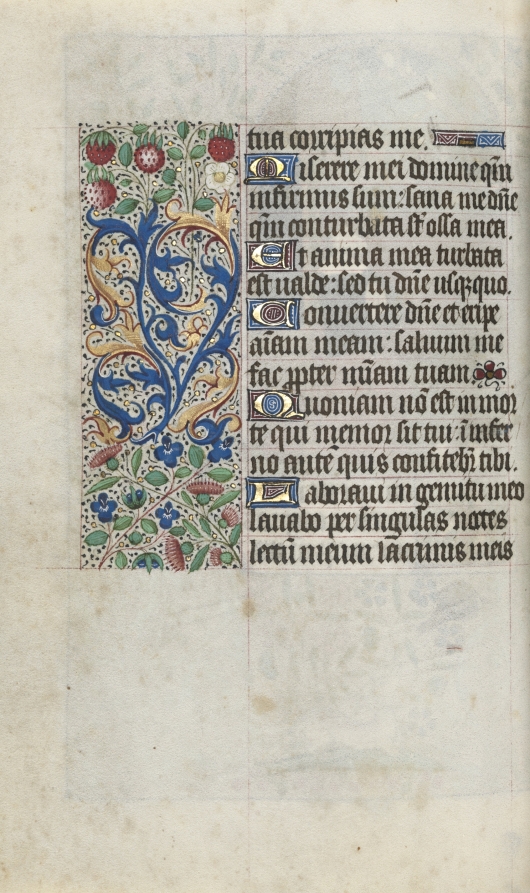 tua corripias me.
Miserere mei domine qm̄
infirmus sum: sana me dn̄e
qm̄ conturbata st̄ ossa mea.
Et anima mea turbata
est ualde: sed tu dn̄e usqꝫquo.
Conuertere dn̄e et eripe
aīam meam: saluum me
fac ꝓpter mīam tuam.
Quoniam nō est in mor
te qui memor sit tui: ī infer
no autē quis confitebr̄ tibi.
Laboraui in gemitu meo
lauabo per singulas noctes
lectū meum lacrimis meis